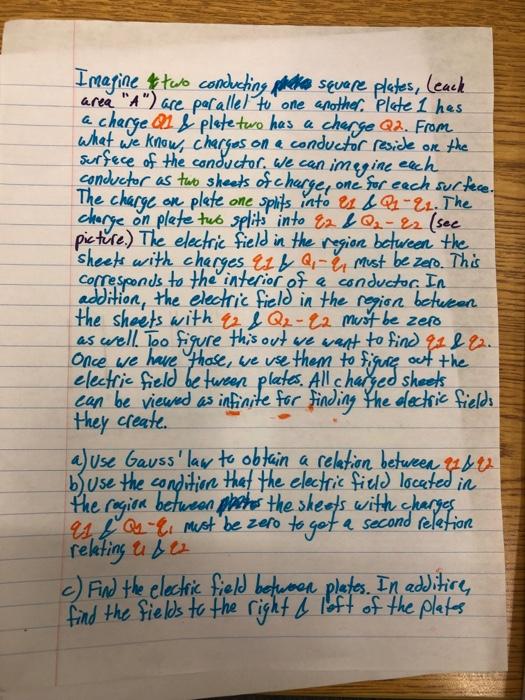 Imagine two conducting square plates, (each
area "A") are parallel to one another. Plate 1 has
a charge Q1 & plate two has a charge Q2. From
what we know, charges on a conductor reside on the
surface of the conductor. we can imagine each
conductor as two sheets of charge, one for each surface.
The charge on plate one splits into q1 & Q1-q1. The
charge on plate two splits into q2 & Q2-q2 (see
picture.) The electric field in the region between the
sheets with charges q1 & Q1-q1 must be zero. This
corresponds to the interior of a conductor. In
addition, the electric field in the region between
the sheets with q2 & Q2-q2 must be zero
as well. Too figure this out we want to find q1 & q2.
Once we have those, we use them to figure out the
electric field between plates. All charged sheets
can be viewed as infinite for finding the electric fields
they create.
a) Use Gauss' law to obtain a relation between q1 & q2
b) Use the condition that the electric field located in
the region between the sheets with charges
q1 & Q1-q1 must be zero to get a second relation
relating q1 & q2
c) Find the electric field between plates. In addition,
find the fields to the right & left of the plates